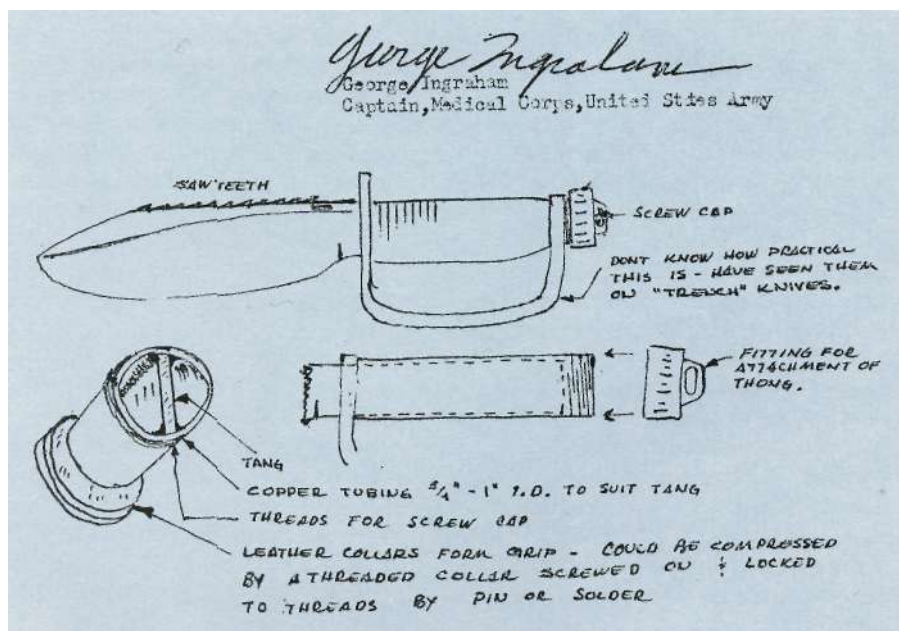 George Ingraham
George Ingraham
Captain,Medical Corps,United Sties Army
SAW TEETH
SCREW CAP
DONT KNOW HOW PRACTICAL
THIS IS - HAVE SEEN THEM
ON "TRENCH" KNIVES.
FITTING FOR
ATTACHMENT OF
THONG.
TANG
COPPER TUBING 3/4" - 1" I.D. TO SUIT TANG
THREADS FOR SCREW CAP
LEATHER COLLARS FORM GRIP - COULD BE COMPRESSED
BY A THREADED COLLAR SCREWED ON & LOCKED
TO THREADS BY PIN OR SOLDER